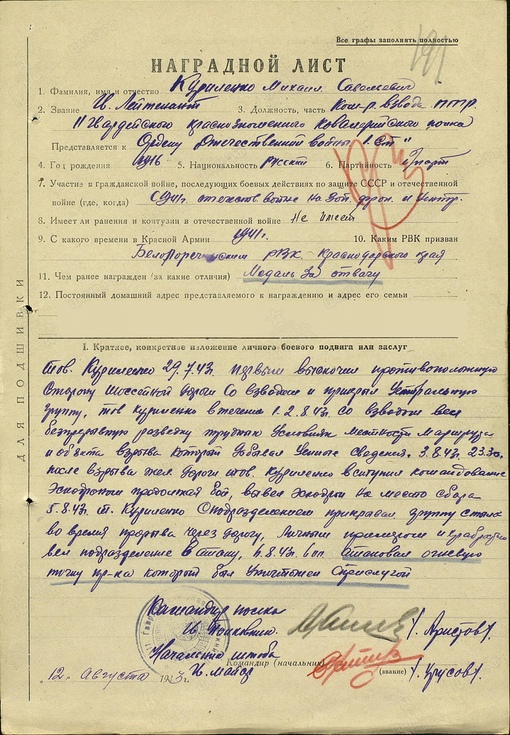 Все графы заполнять полностью
191
НАГРАДНОЙ ЛИСТ
1. Фамилия, имя и отчество Куриленко Михаил Савельевич
2. Звание Гв. Лейтенант 3. Должность, часть Ком-р взвода ПТР
11 Гвардейского краснознаменного кавалерийского полка
Представляется к Ордену Отечественной войны 1 Ст"
4. Год рождения 1916 5. Национальность русский 6. Партийность
7. Участие в гражданской войне, последующих боевых действиях по защите СССР и отечественной
войне (где, когда) С 1941г отечеств войне на фрон. и центр.
8. Имеет ли ранения и контузии в отечественной войне Не имеет
9. С какого времени в Красной Армии 1941г. 10. Каким РВК призван
Белореченским РВК Краснодарского края
11. Чем ранее награжден (за какие отличия) Медаль За отвагу
12. Постоянный домашний адрес представляемого к награждению и адрес его семьи
ДЛЯ ПОДШИВКИ
I. Краткое, конкретное изложение личного боевого подвига или заслуг
Тов. Куриленко 29.7.43. первым выскочил противоположную
сторону шоссейной дороги со взводом и прикрыл
группу, тов Куриленко в течении 1.2.8.43. со взводом вел
безпрерывную разведку трудных условиях местности маршрута
и объекта взрыва который добывал ценные сведения. 3.8.43г. 23.30
после взрыва жел. дороги тов. Куриленко вступил командование
эскадроном продолжая бой, вывел эскадрон на место сбора
5.8.43г. т. Куриленко с подразделением прикрывал группу
во время прорыва через дорогу, личным примером и храбростью
вел подразделение в атаку, 6.8.43г.
точку пр-ка который был уничтожен с прислугой
Командир полка
Гв. / Аристов /.
Начальник штаба
Командир (начальник)
Гв. Майор (звание) / Урусов /.
12. Августа 1943г.